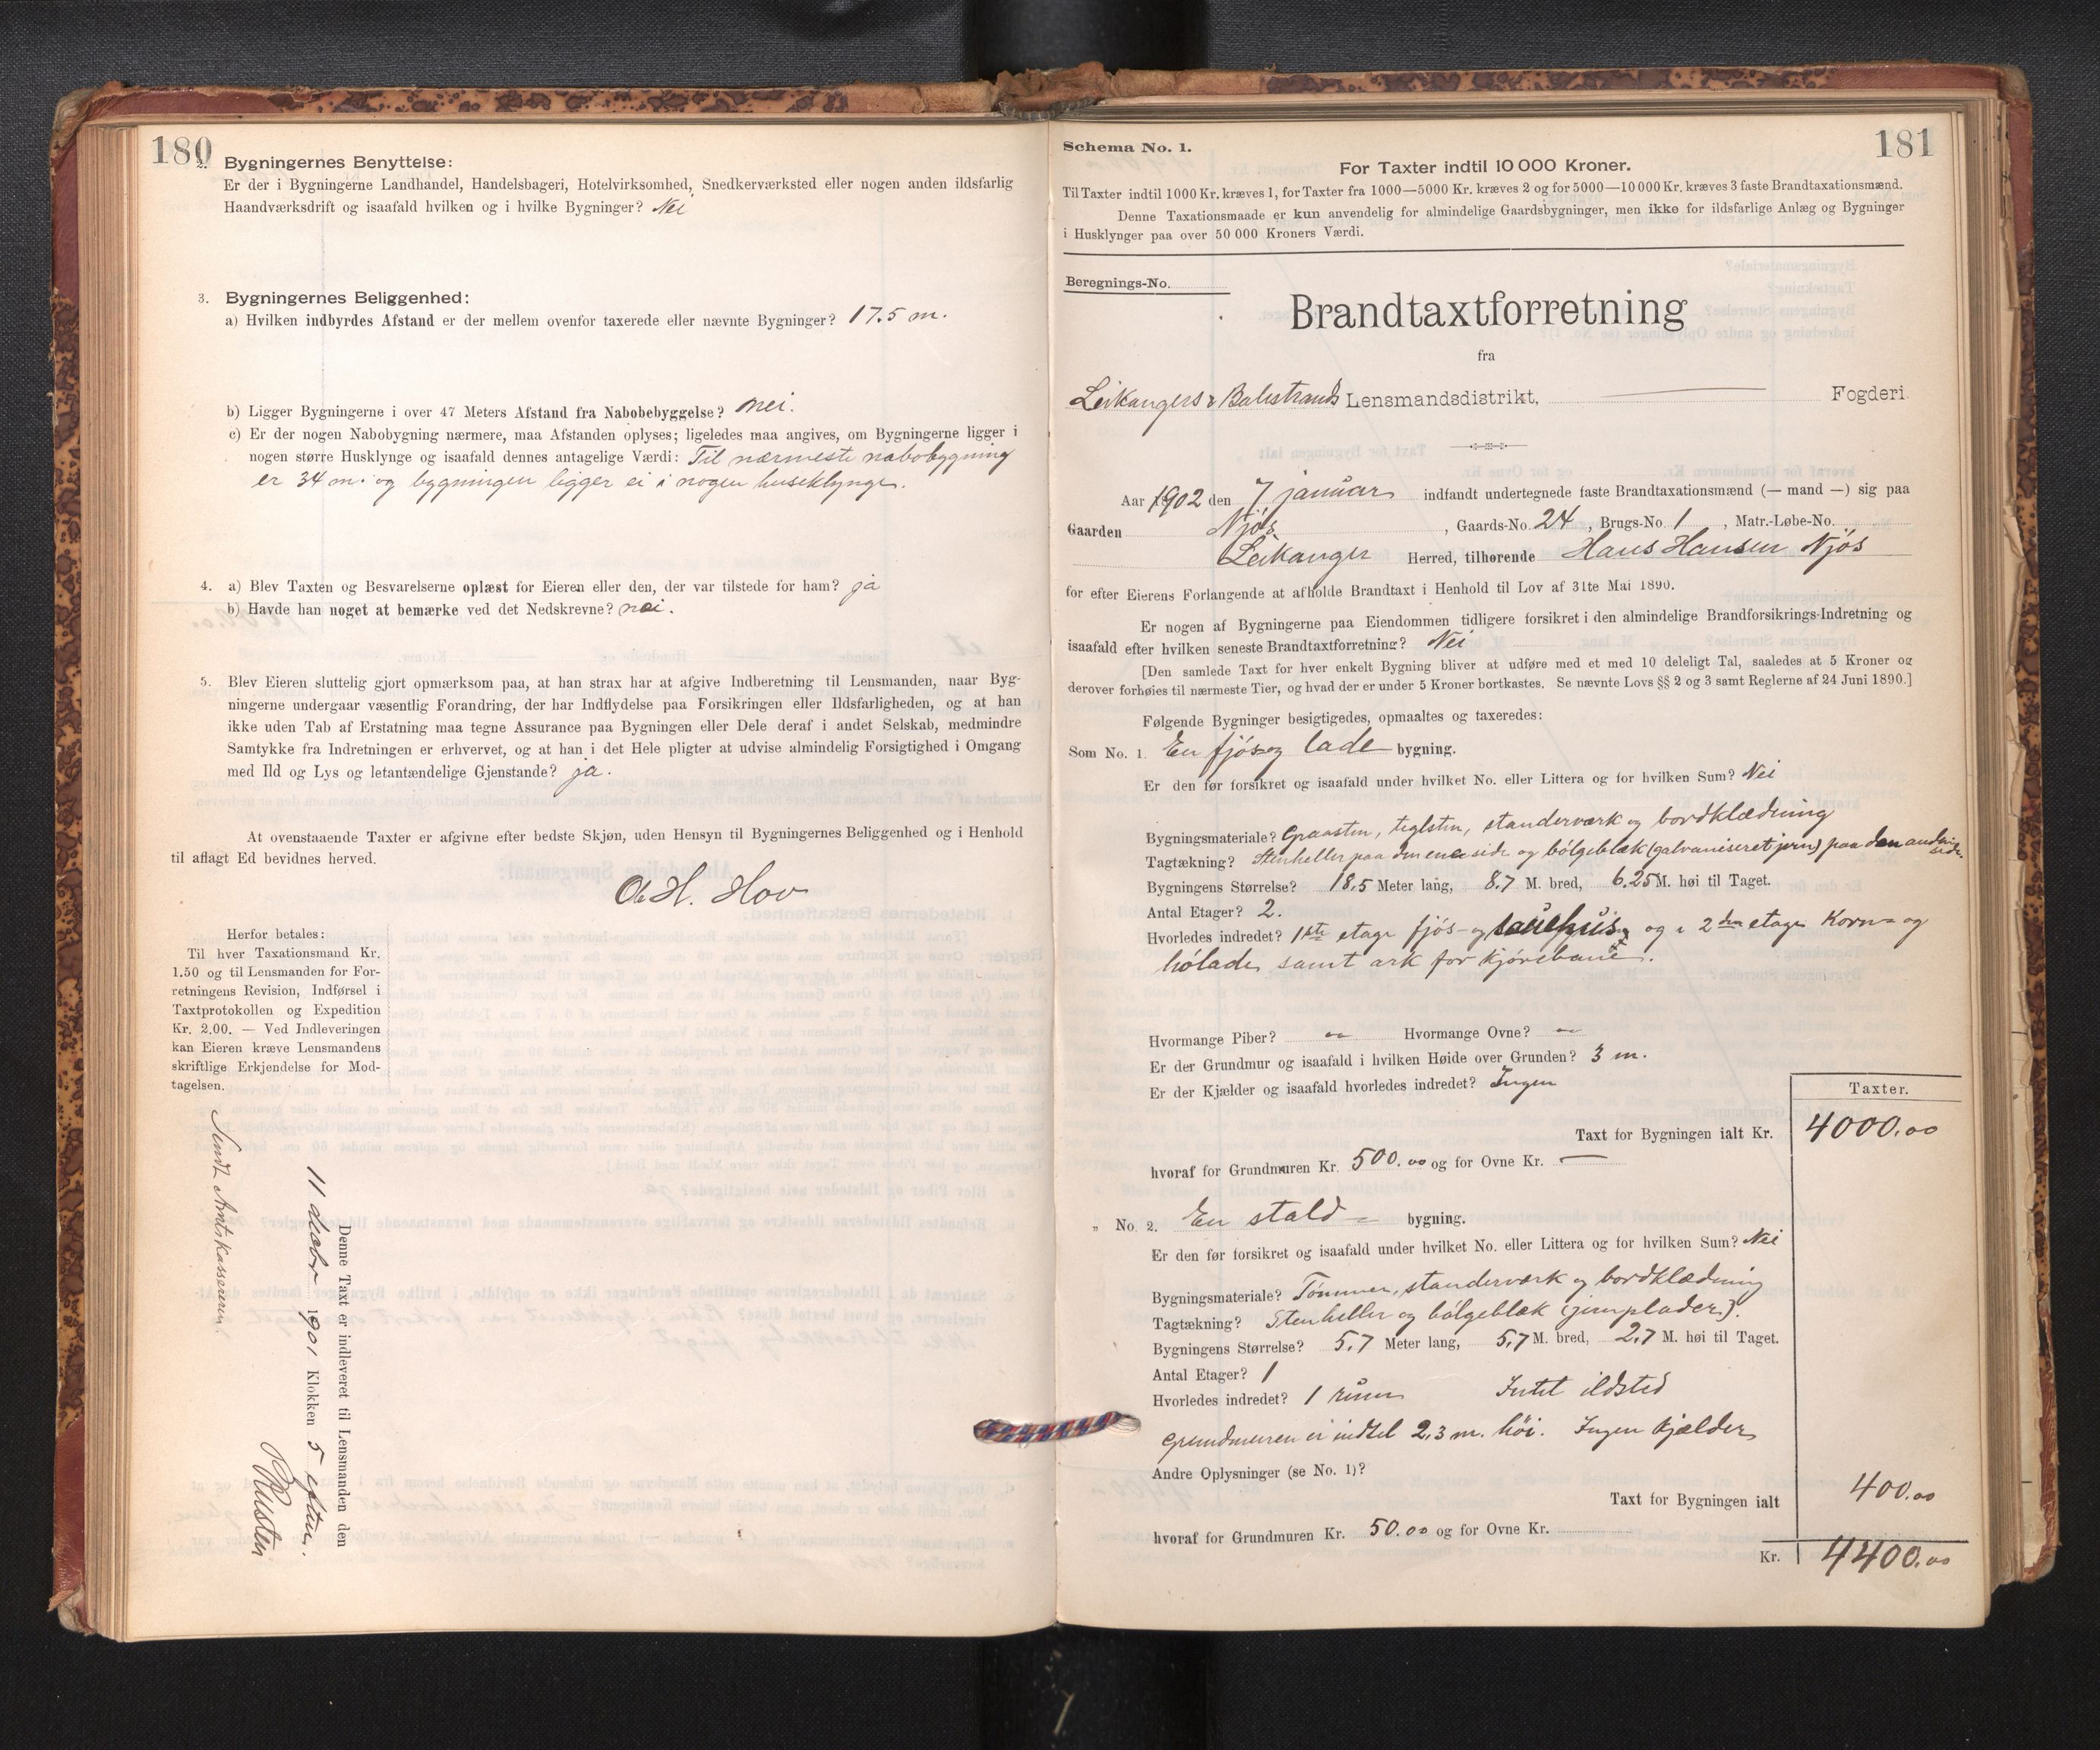 180
2. Bygningernes Benyttelse:
Er der i Bygningerne Landhandel, Handelsbageri, Hotelvirksomhed, Snedkerværksted eller nogen anden ildsfarlig
Haandværksdrift og isaafald hvilken og i hvilke Bygninger? Nei
3. Bygningernes Beliggenhed:
a) Hvilken indbyrdes Afstand er der mellem ovenfor taxerede eller nævnte Bygninger? 17.5 m.
b) Ligger Bygningerne i over 47 Meters Afstand fra Nabobebyggelse? nei.
c) Er der nogen Nabobygning nærmere, maa Afstanden oplyses; ligeledes maa angives, om Bygningerne ligger i
nogen større Husklynge og isaafald dennes antagelige Værdi: Til nærmeste nabobygning
er 34 m. og bygningen ligger ei i nogen huseklynge.
4. a) Blev Taxten og Besvarelserne oplæst for Eieren eller den, der var tilstede for ham? ja
b) Havde han noget at bemærke ved det Nedskrevne? nei.
5. Blev Eieren sluttelig gjort opmærksom paa, at han strax har at afgive Indberetning til Lensmanden, naar Byg-
ningerne undergaar væsentlig Forandring, der har Indflydelse paa Forsikringen eller Ildsfarligheden, og at han
ikke uden Tab af Erstatning maa tegne Assurance paa Bygningen eller Dele deraf i andet Selskab, medmindre
Samtykke fra Indretningen er erhvervet, og at han i det Hele pligter at udvise almindelig Forsigtighed i Omgang
med Ild og Lys og letantændelige Gjenstande? ja.
At ovenstaaende Taxter er afgivne efter bedste Skjøn, uden Hensyn til Bygningernes Beliggenhed og i Henhold
til aflagt Ed bevidnes herved.
H. Hov
Herfor betales:
Til hver Taxationsmand Kr.
1.50 og til Lensmanden for For-
retningens Revision, Indførsel i
Taxtprotokollen og Expedition
Kr. 2,00. — Ved Indleveringen
kan Eieren kræve Lensmandens
skriftlige Erkjendelse for Mod-
tagelsen.
Denne Taxt er indleveret til Lensmanden den
11 decbr 1901 Klokken 5 eftm.
Rusten
Sendt Amtskassereren.
181
Schema No. 1.
For Taxter indtil 10 000 Kroner.
Til Taxter indtil 1000 Kr. kræves 1, for Taxter fra 1000—5000 Kr. kræves 2 og for 5000—10 000 Kr. kræves 3 faste Brandtaxationsmænd.
Denne Taxationsmaade er kun anvendelig for almindelige Gaardsbygninger, men ikke for ildsfarlige Anlæg og Bygninger
i Husklynger paa over 50 000 Kroners Værdi.
Beregnings-No.
Brandtaxtforretning
fra
Leikangers & Balestrands Lensmandsdistrikt, Fogderi.
Aar 1902 den 7 januar indfandt undertegnede faste Brandtaxationsmænd (— mand —) sig paa
Gaarden Njøs, Gaards-No. 24, Brugs-No. 1, Matr.-Løbe-No.
Leikanger Herred, tilhørende Hans Hansen Njøs
for efter Eierens Forlangende at afholde Brandtaxt i Henhold til Lov af 31te Mai 1890.
Er nogen af Bygningerne paa Eiendommen tidligere forsikret i den almindelige Brandforsikrings-Indretning og
isaafald efter hvilken seneste Brandtaxtforretning? Nei
[Den samlede Taxt for hver enkelt Bygning bliver at udføre med et med 10 deleligt Tal, saaledes at 5 Kroner og
derover forhøies til nærmeste Tier, og hvad der er under 5 Kroner bortkastes. Se nævnte Lovs §§ 2 og 3 samt Reglerne af 24 Juni 1890.]
Følgende Bygninger besigtigedes, opmaaltes og taxeredes:
Som No. 1. En fjøs og lade bygning.
Er den før forsikret og isaafald under hvilket No. eller Littera og for hvilken Sum? Nei
Bygningsmateriale? Graasten, teglsten, standerværk og bordklædning
Tagtækning? Stenheller paa den ene side og bølgeblæk (galvaniseret jern) paa den anden side.
Bygningens Størrelse? 18.5 Meter lang, 8.7 M. bred, 6.25 M. høi til Taget.
Antal Etager? 2.
Hvorledes indredet? 1ste etage fjøs- og sauehus, og i 2den etage Korn- og
hølade, samt ark for kjørebane.
Hvormange Piber? Hvormange Ovne?
Er der Grundmur og isaafald i hvilken Høide over Grunden? 3 m.
Er der Kjælder og isaafald hvorledes indredet? Ingen
Taxter.
Taxt for Bygningen ialt Kr. 4000.00
hvoraf for Grundmuren Kr. 500.00 og for Ovne Kr. —
„ No. 2. En stald- bygning.
Er den før forsikret og isaafald under hvilket No. eller Littera og for hvilken Sum? Nei
Bygningsmateriale? Tømmer, standerværk og bordklædning
Tagtækning? Stenheller og bølgeblæk (jernplader).
Bygningens Størrelse? 5.7 Meter lang, 5,7 M. bred, 2,7 M. høi til Taget.
Antal Etager? 1
Hvorledes indredet? 1 rum Intet ildsted
Grundmuren er indtil 2,3 m. høi. Ingen Kjælder
Andre Oplysninger (se No. 1)?
Taxt for Bygningen ialt 400.00
hvoraf for Grundmuren Kr. 50.00 og for Ovne Kr.
Kr. 4400.00